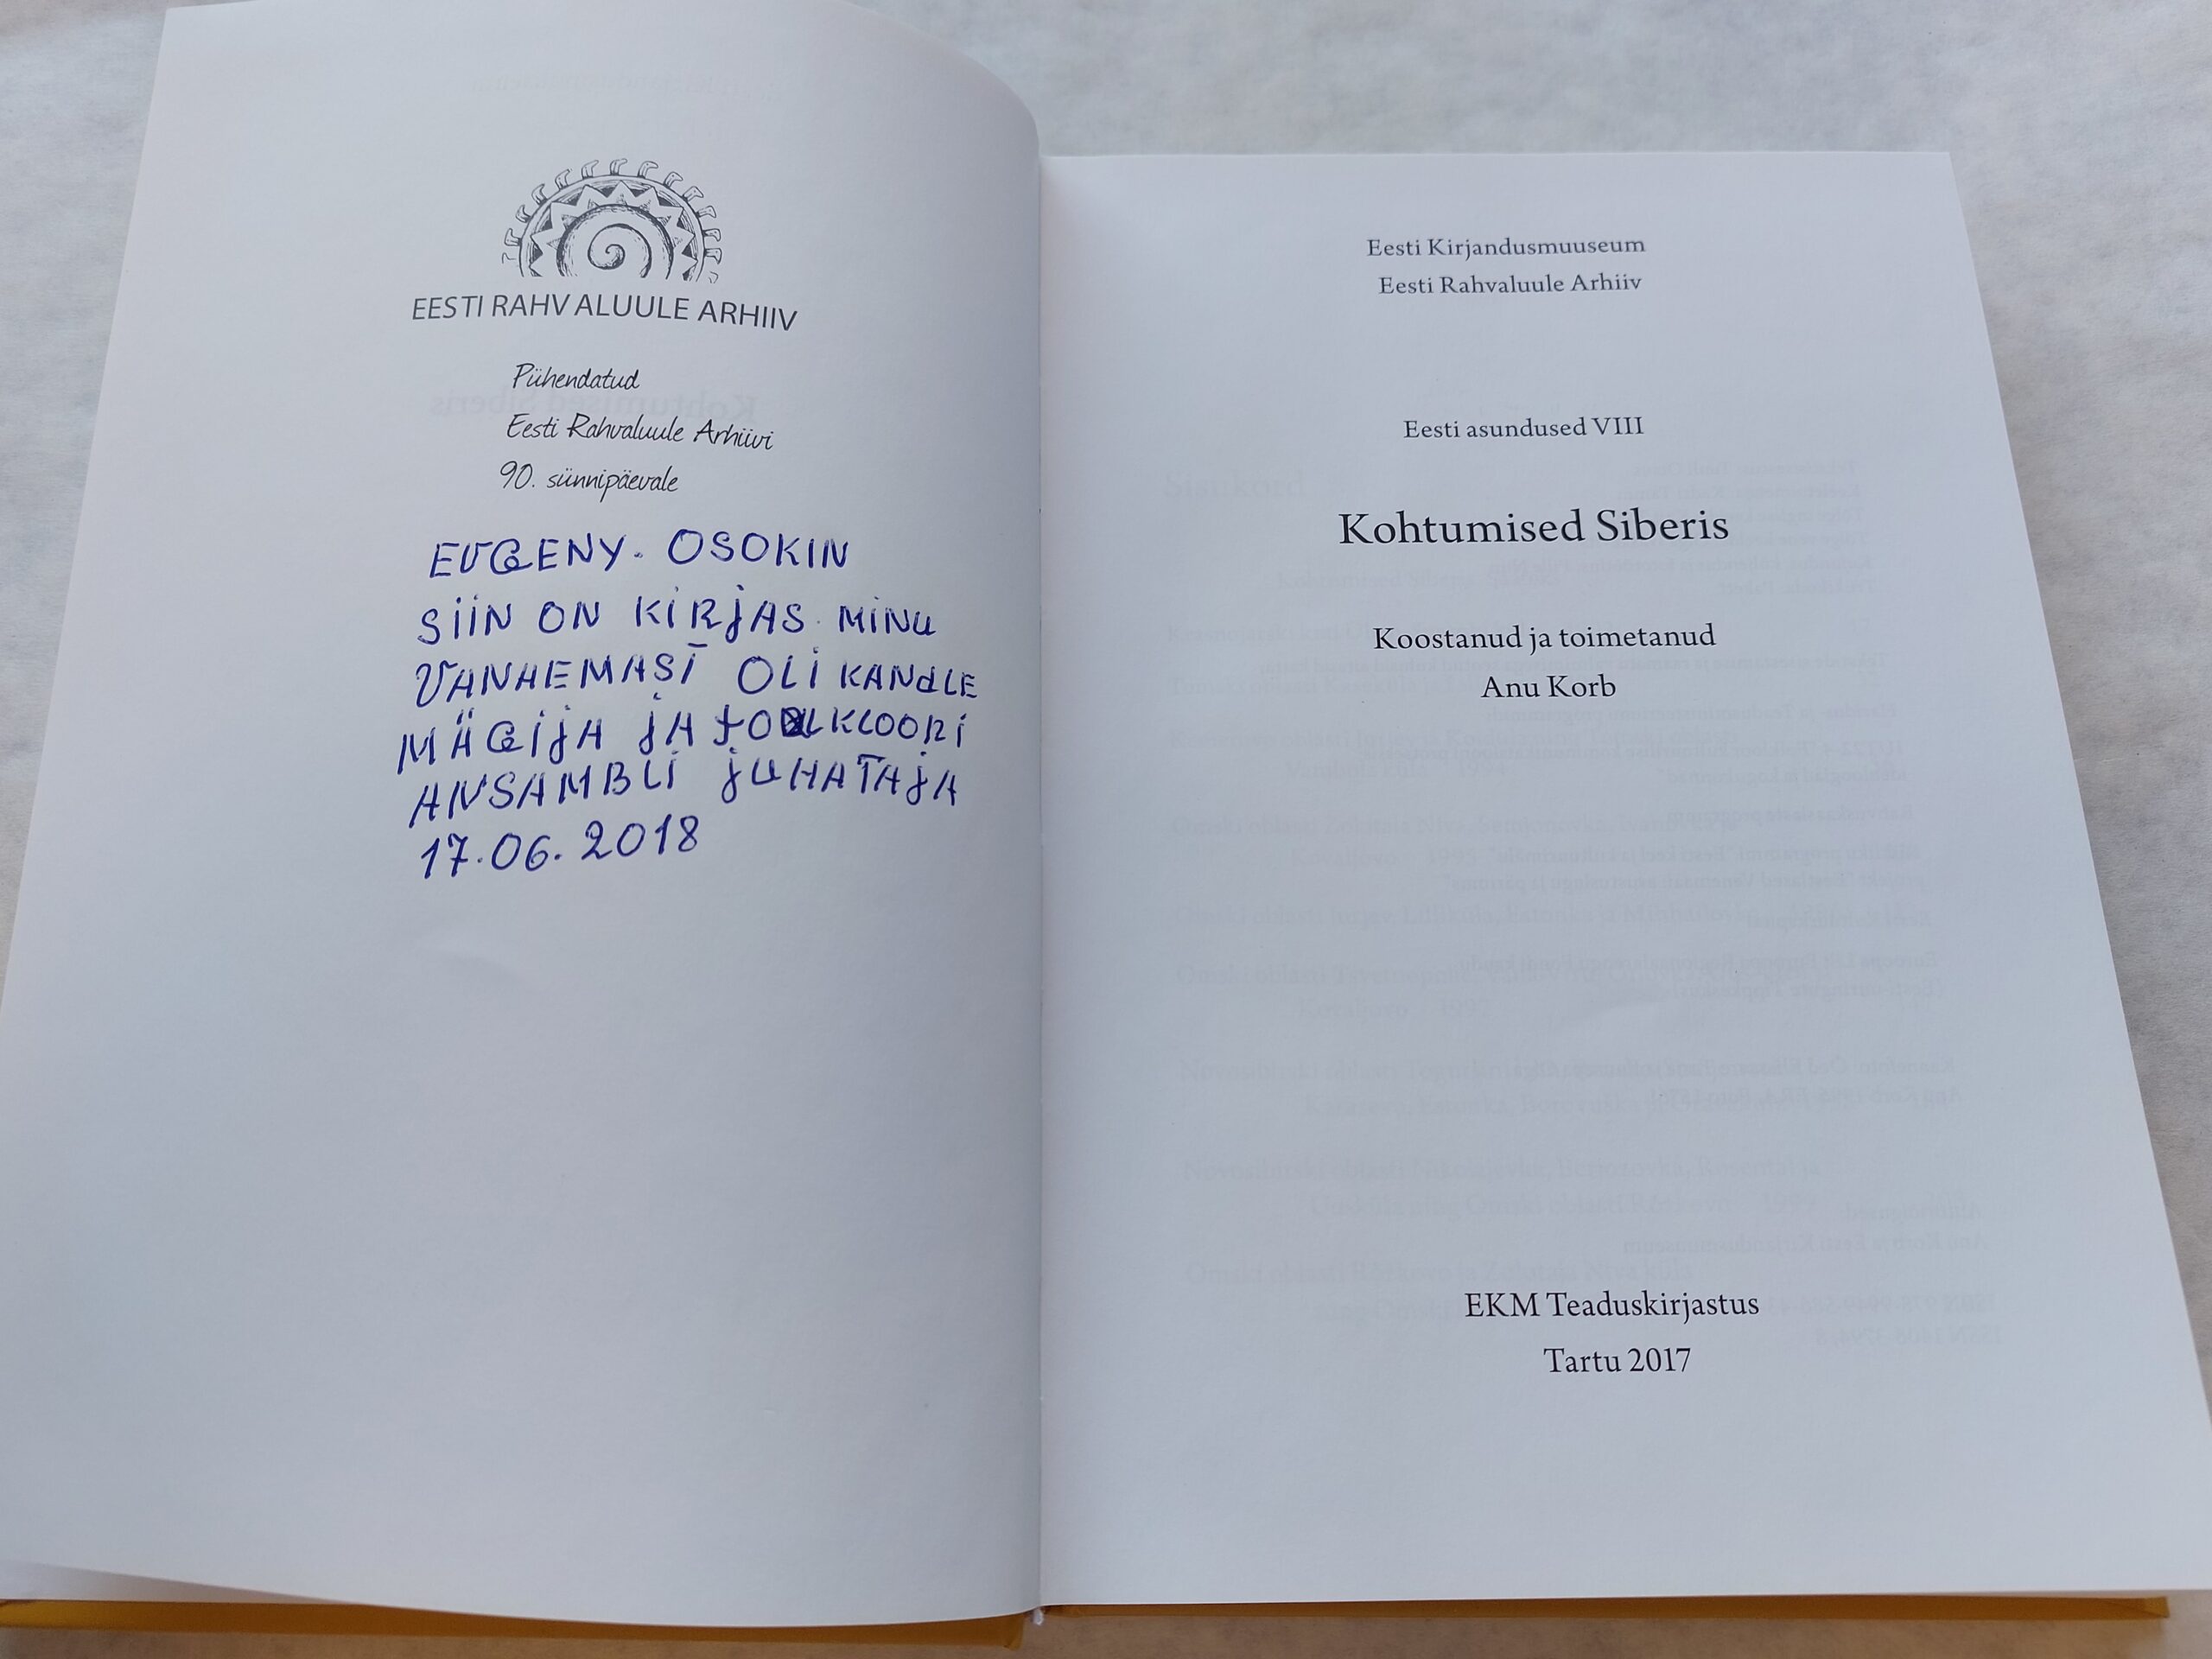 EESTI RAHVALUULE ARHIIV
Pühendatud
Eesti Rahvaluule Arhiivi
90. sünnipäevale
EVGENY. OSOKIN
SIIN ON KIRJAS MINU
VANAEMAST OLI KANDLE
MÄGIJA JA FOLKLOORI
ANSAMBLI JUHATAJA
17.06.2018
Eesti Kirjandusmuuseum
Eesti Rahvaluule Arhiiv
Eesti asundused VIII
Kohtumised Siberis
Koostanud ja toimetanud
Anu Korb
EKM Teaduskirjastus
Tartu 2017